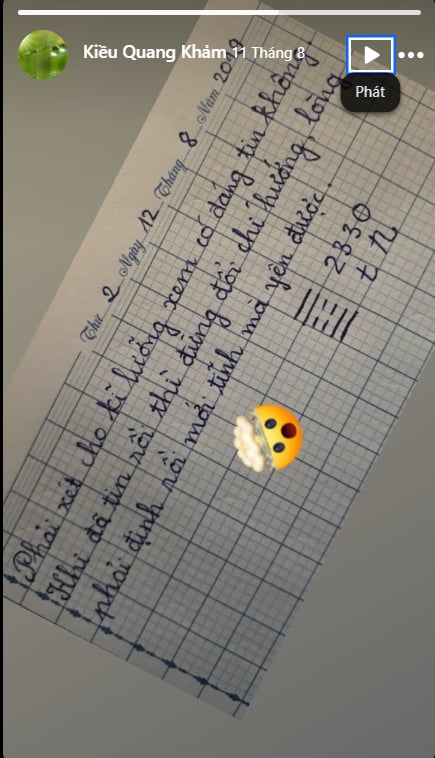 Kiều Quang Khảm 11 Tháng 8
Phát
Thứ 2 Ngày 12 Tháng 8 Năm 2019
Phải xét cho kĩ lưỡng xem có đáng tin không.
Khi đã tin rồi thì đừng đổi chí hướng, lòng
phải định rồi mới tĩnh mà yên được.
2330
t n